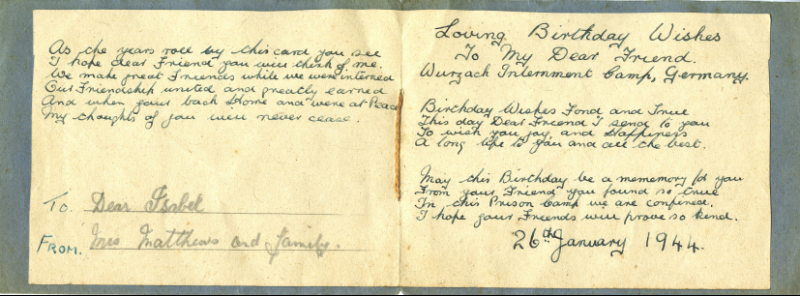 As the years roll by this card you see
I hope dear Friend you will think of me.
We made great Friends while we were interned
Our Friendship united and greatly earned
And when your back Home and were at Peace
My thoughts of you will never cease.
To. Dear Isabel
From. Mrs. Matthews and family.
Loving Birthday Wishes
To My Dear Friend.
Wurzach Internment Camp, Germany.
Birthday Wishes Fond and True
This day Dear Friend I send to you
To wish you joy, and Happiness
A long life to you and all the best.
May this Birthday be a mememory to you
From your Friend you found so true
In this Prison Camp we are confined.
I hope your Friends will prove so kind.
26th January 1944.